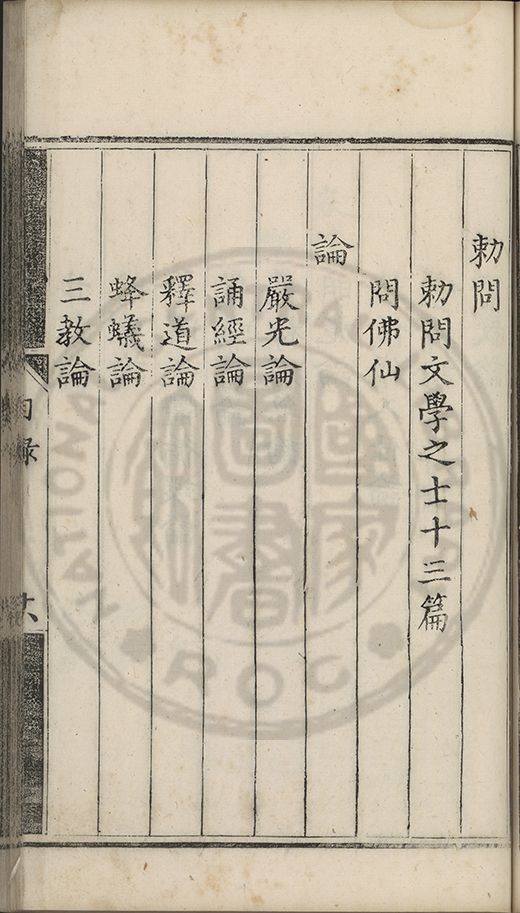 勅問
勅問文學之士十三篇
問佛仙
論
嚴光論
誦經論
釋道論
蜂蟻論
三教論
目録